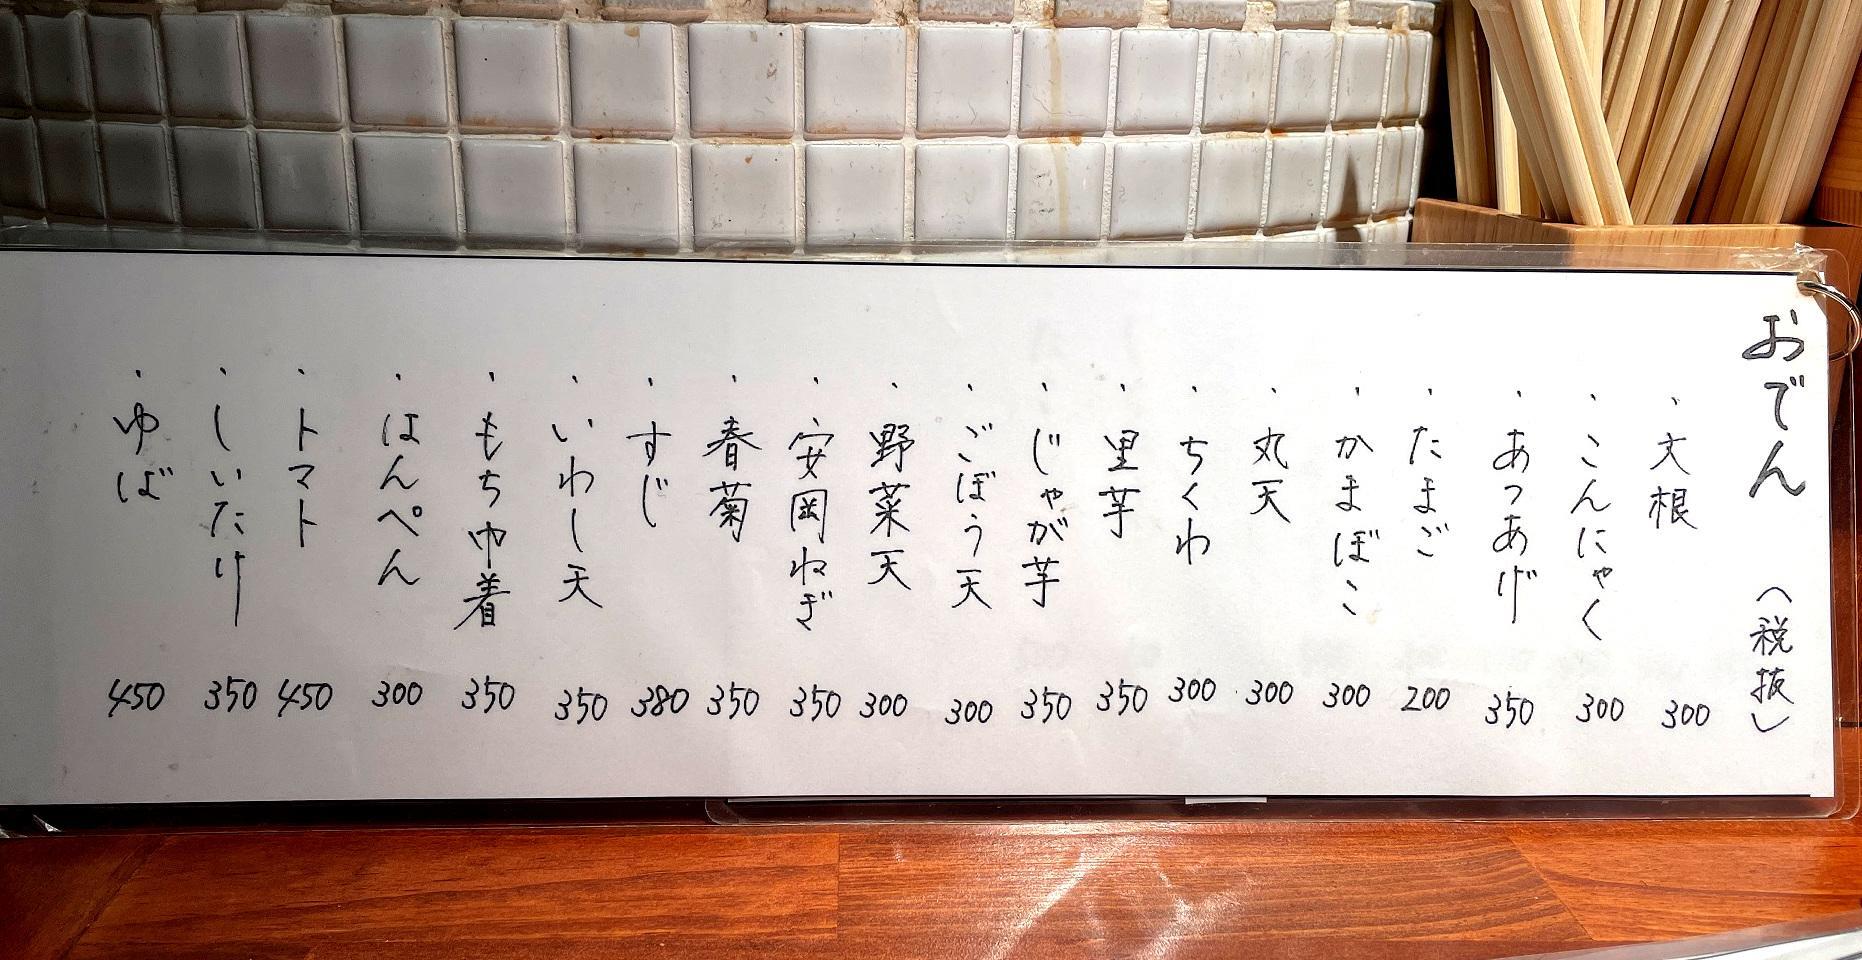 おでん （税抜）
・大根 300
・こんにゃく 300
・あつあげ 350
・たまご 200
・かまぼこ 300
・丸天 300
・ちくわ 300
・里芋 350
・じゃが芋 350
・ごぼう天 300
・野菜天 300
・安岡ねぎ 350
・春菊 350
・すじ 380
・いわし天 350
・もち巾着 350
・はんぺん 300
・トマト 450
・しいたけ 350
・ゆば 450